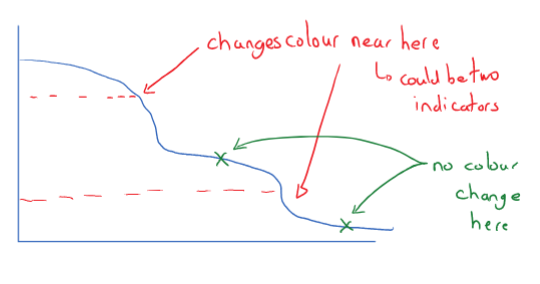 changes colour near here
↳ could be two
indicators
no colour
change
here